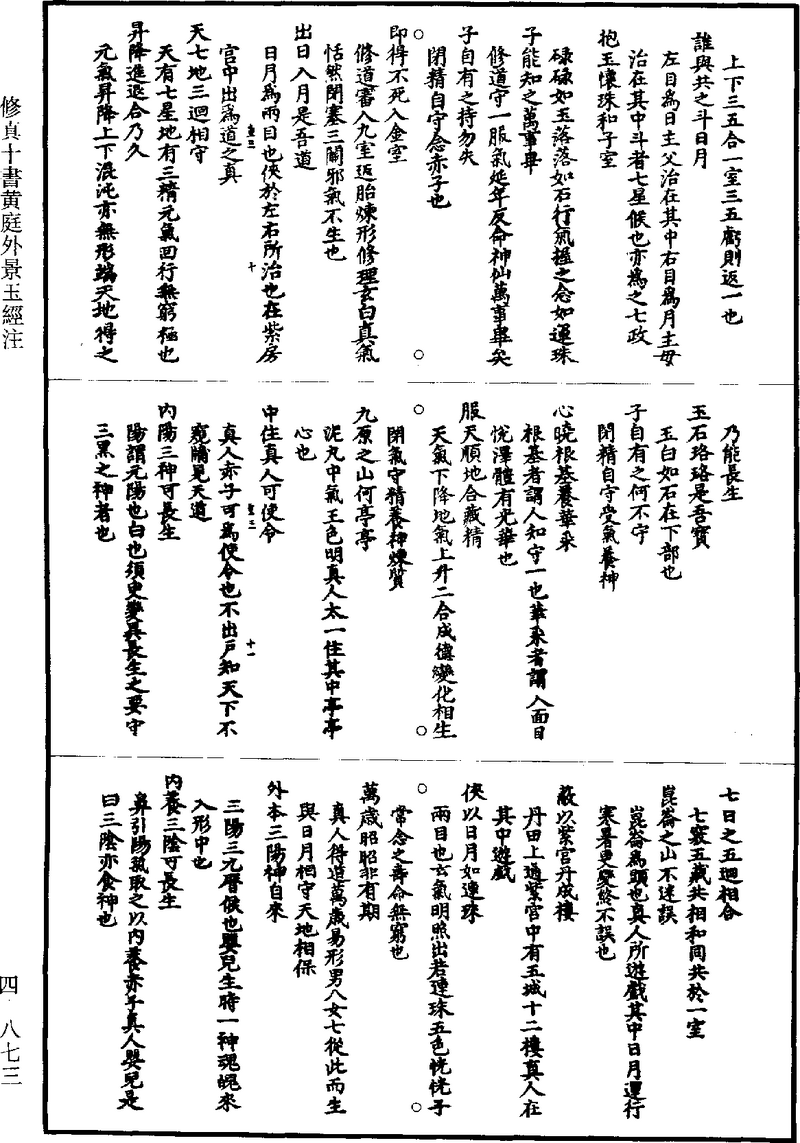 上下三五合一室三五虧則返一也
誰與共之斗日月
左目爲日主父治在其中右目爲月主母
治在其中斗者七星候也亦爲之七政
抱玉懷珠和子室
碌碌如玉落落如石行氣握之念如運珠
子能知之萬事畢
修道守一服氣延年反命神仙萬事畢矣
子自有之持勿失
閉精自守念赤子也
即得不死入金室
修道審入九室返胎煉形修理玄白真氣
恬然閉塞三關邪氣不生也
出日入月是吾道
日月爲兩目也俠於左右所治也在紫房
宮中出爲道之真
天七地三迴相守
天有七星地有三精元氣回行無窮極也
昇降進退合乃久
元氣昇降上下混沌亦無形端天地得之
乃能長生
玉石珞珞是吾寶
玉白如石在下部也
子自有之何不守
閉精自守受氣養神
心曉根基養華采
根基者謂人知守一也華采者謂人面目
悅澤體有光華也
服天順地合藏精
天氣下降地氣上升二合成德變化相生
閉氣守精養神煉質
九原之山何亭亭
泥丸中氣王色明真人太一住其中亭亭
心也
中住真人可使令
真人赤子可爲使令也不出戶知天下不
窺牖見天道
內陽三神可長生
陽謂元陽也白也須臾變異長生之要守
三黑之神者也
七日之五迴相合
七竅五藏共相和同共於一室
崑崙之山不迷誤
崑崙爲頭也真人所遊戲其中日月運行
寒暑更變終不誤也
蔽以紫宮丹成樓
丹田上過紫宮中有五城十二樓真人在
其中遊戲
俠以日月如連珠
兩目也玄氣明照出若連珠五色恍恍子
常念之壽命無窮也
萬歲昭昭非有期
真人得道萬歲易形男八女七從此而生
與日月相守天地相保
外本三陽神自來
三陽三元曆候也嬰兒生時一神魂魄來
入形中也
內養三陰可長生
鼻引陽氣取之以內養赤子真人嬰兒是
曰三陰亦食神也
修真十書黃庭外景玉經注
四·八七三